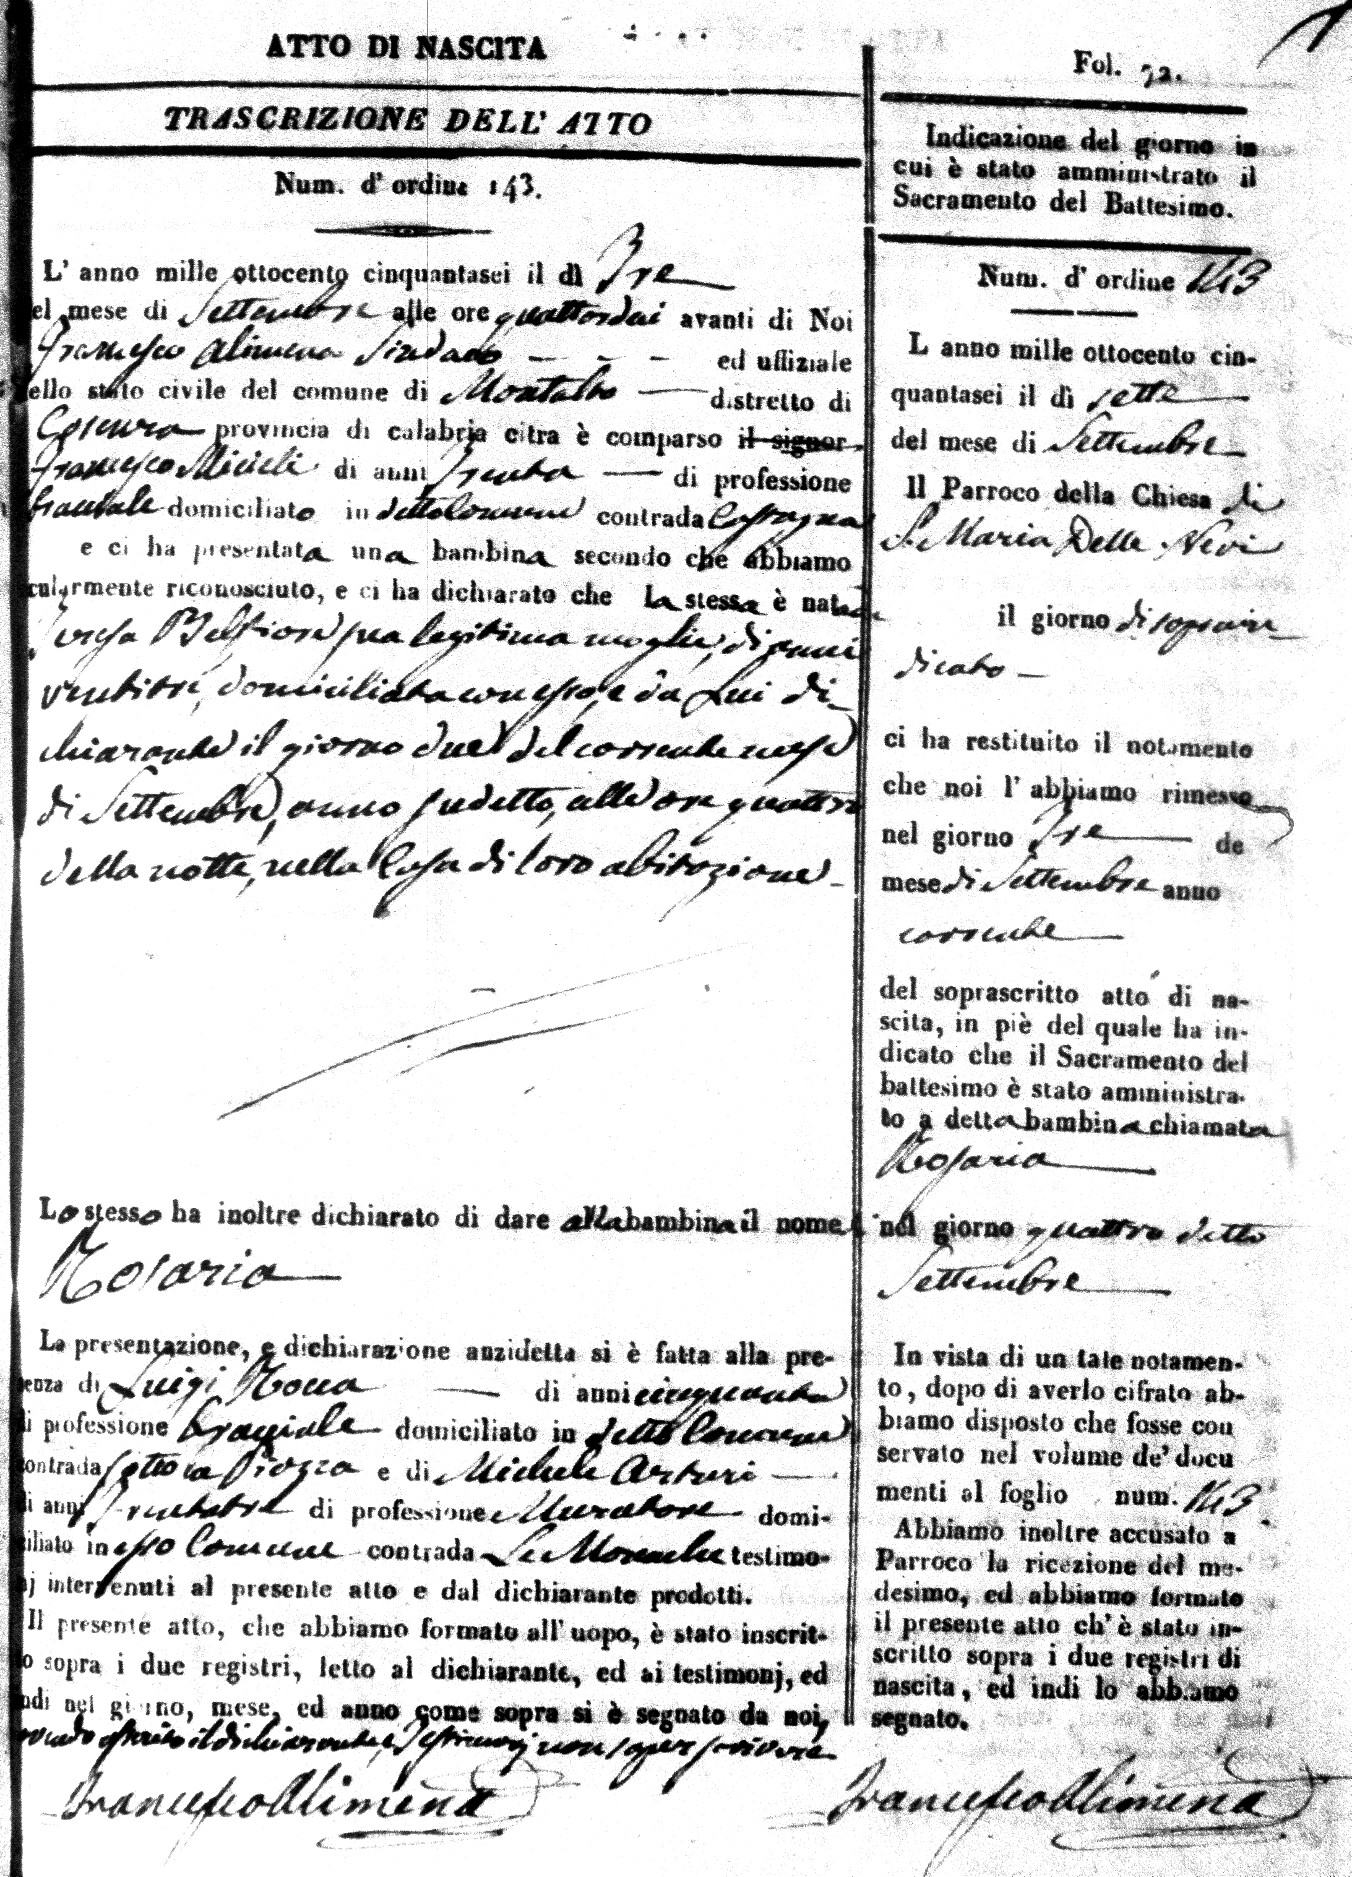 ATTO DI NASCITA
TRASCRIZIONE DELL' ATTO
Num. d' ordine 143.
L' anno mille ottocento cinquantasei il dì Tre
el mese di Settembre alle ore quattordici avanti di Noi
Francesco Alimena Sindaco — — — ed uffiziale
ello stato civile del comune di Montalto — distretto di
Cosenza provincia di calabria citra è comparso il signor
Francesco Miceli di anni Trenta — di professione
bracciale domiciliato in detto Comune contrada
e ci ha presentata una bambina secondo che abbiamo
cularmente riconosciuto, e ci ha dichiarato che la stessa è nata da
Teresa Belfiore sua legittima moglie, di anni
ventitre, domiciliata con esso, e da Lui di-
chiarante il giorno due del corrente mese
di Settembre, anno sudetto, alle ore quattro
della notte, nella Casa di loro abitazione -
Lo stesso ha inoltre dichiarato di dare alla bambina il nome d
Rosaria
La presentazione, e dichiarazione anzidetta si è fatta alla pre-
senza di Luigi — di anni cinquanta
di professione bracciale domiciliato in detto Comune
contrada sotto la Piazza e di Michele Arturi —
di anni Trentatre di professione Muratore domi-
ciliato in esso Comune contrada Le testimo-
nj intervenuti al presente atto e dal dichiarante prodotti.
Il presente atto, che abbiamo formato all' uopo, è stato inscrit-
to sopra i due registri, letto al dichiarante, ed ai testimonj, ed
indi nel giorno, mese, ed anno come sopra si è segnato da noi,
avendo asserito il dichiarante, e Testimonj non saper scrivere
Francesco Alimena
Fol. 72.
Indicazione del giorno in
cui è stato amministrato il
Sacramento del Battesimo.
Num. d' ordine 143
L anno mille ottocento cin-
quantasei il dì sette
del mese di Settembre
Il Parroco della Chiesa di
S. Maria Delle Nevi
il giorno di soprain
dicato —
ci ha restituito il notamento
che noi l' abbiamo rimesso
nel giorno Tre — de
mese di Settembre anno
corrente
del soprascritto atto di na-
scita, in piè del quale ha in-
dicato che il Sacramento del
battesimo è stato amministra-
to a detta bambina chiamata
Rosaria
nel giorno quattro detto
Settembre
In vista di un tale notamen-
to, dopo di averlo cifrato ab-
biamo disposto che fosse con
servato nel volume de' docu
menti al foglio num. 143.
Abbiamo inoltre accusato a
Parroco la ricezione del me-
desimo, ed abbiamo formato
il presente atto ch' è stato in-
scritto sopra i due registri di
nascita, ed indi lo abbiamo
segnato.
Francesco Alimena